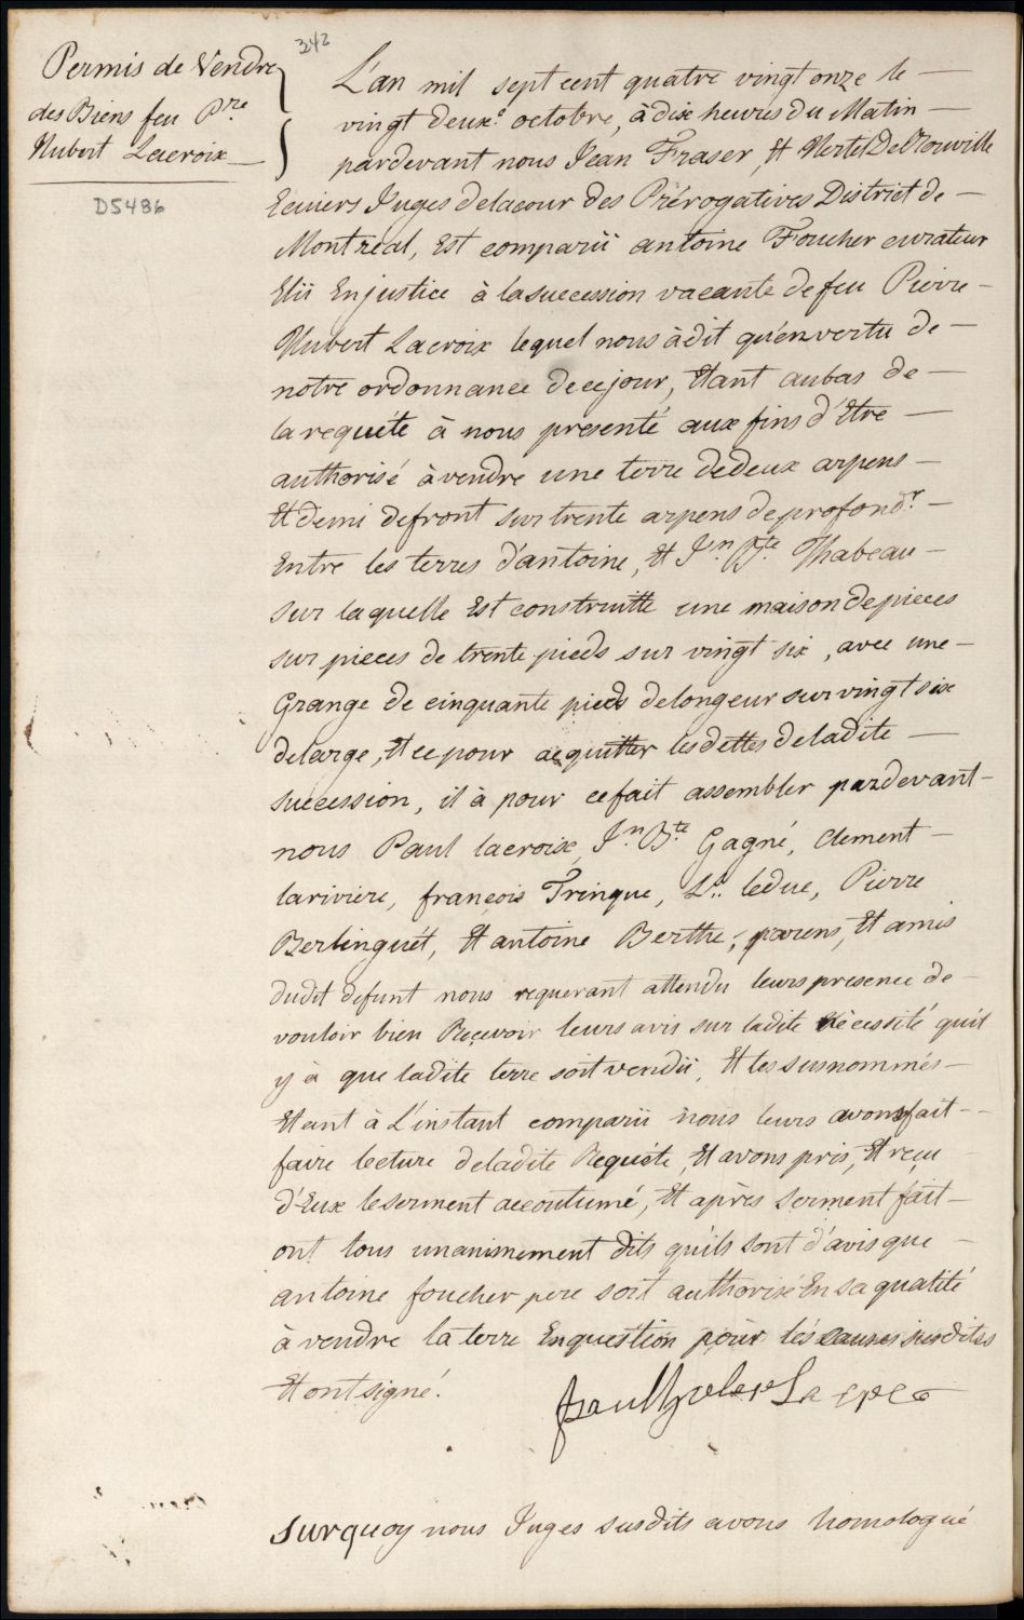 Permis de Vendre
des Biens feu P.re
Hubert Lacroix
D5486
342
L'an mil sept cent quatre vingt onze le
vingt deux.e octobre, à dix heures du Matin
pardevant nous Jean Fraser, Et Hertel De Rouville
Ecuiers Juges delacour des Prérogatives District de
Montreal, Est comparü antoine Foucher curateur
Elü Enjustice à lasuccession vacante defeu Pierre
Hubert Lacroix lequel nous àdit qu'envertu de
notre ordonnance decejour, Etant aubas de
larequéte à nous presenté aux fins d'Etre
authorisé àvendre une terre dedeux arpens
Et demi defront sur trente arpens deprofond.r
Entre les terres d'antoine, Et J.n B.te Thabeau
sur laquelle Est construitte une maison depieces
sur pieces de trente pieds sur vingt six, avec une
Grange de cinquante pieds delongeur sur vingt six
delarge, Et ce pour acquitter lesdettes deladite
succession, il à pour cefait assembler pardevant
nous Paul lacroix, J.n B.te Gagné, Clement
lariviere, françois Trinque, L.s leduc, Pierre
Berlinguét, Et antoine Berthe, parens, Et amis
dudit defunt nous requerant attendu leurs presence de
vouloir bien Recevoir leurs avis sur ladite Nécessité quil
y à que ladite terre soit vendü, Et les susnommés
Etant à L'instant comparü nous leurs avons fait
faire lecture deladite Requéte, Et avons pris, Et reçu
d'Eux le serment accoutumé, Et après serment fait
ont tous unanimement dits qu'ils sont d'avis que
antoine foucher pere soit authorisé En sa qualité
à vendre la terre Enquestion pour les causes susdites
Et ont signé.
surquoy nous Juges susdits avons homologué